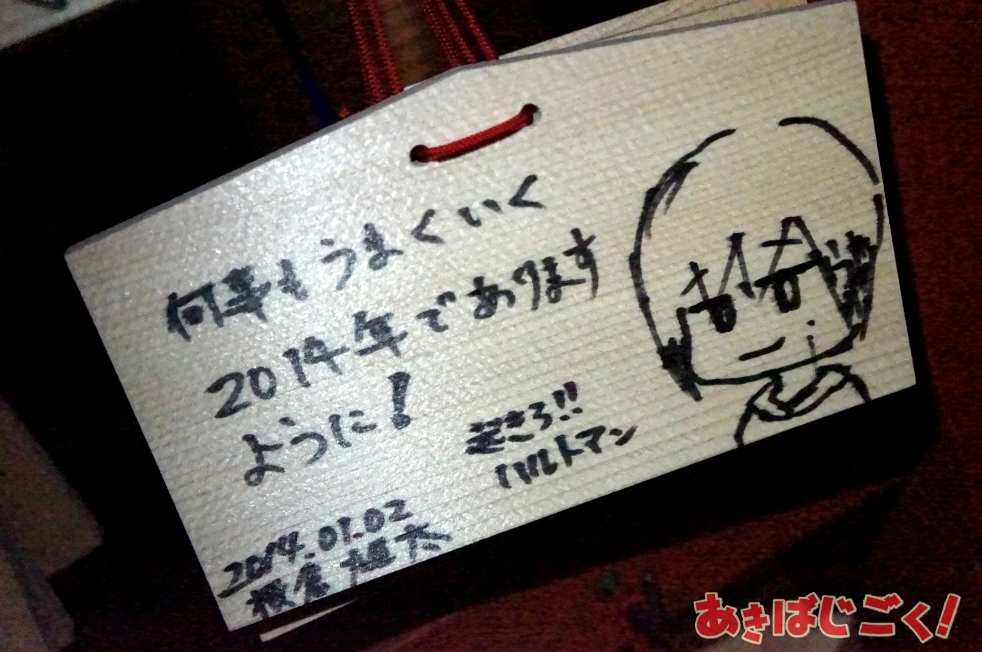 何事もうまくいく
2014年であります
ように!
起きろ!!
ハルトマン
2014.01.02
あきばじごく!